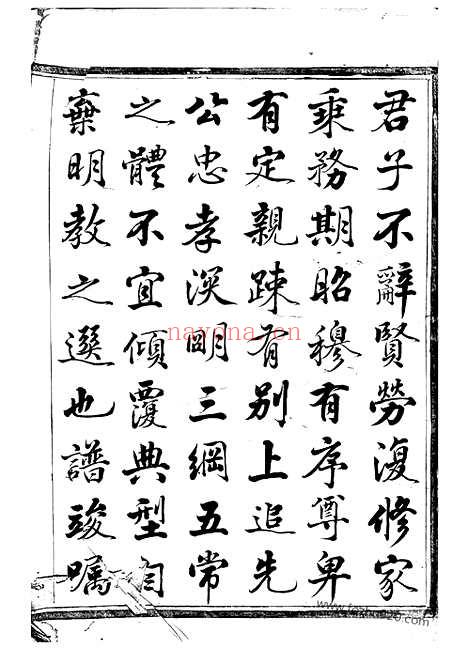 君子不辭賢勞復修家
乘務期昭穆有序尊卑
有定親疎有别上追先
公忠孝渓明三綱五常
之體不宜傾覆典型自
棄明教之選也譜竣囑
nayona.cn